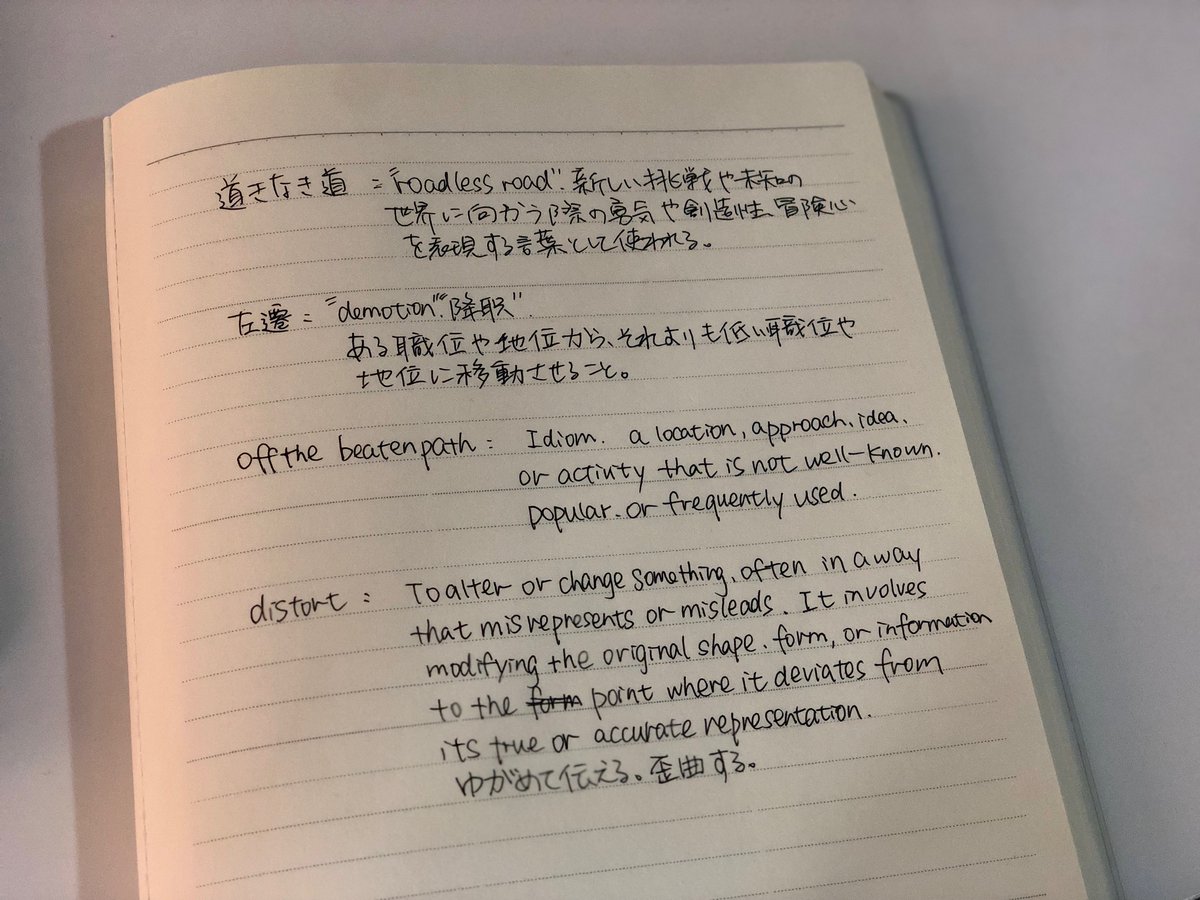 道きなき道 = "roadless road". 新しい挑戦や未知の
世界に向かう際の勇気や創造性、冒険心
を表現する言葉として使われる。
左遷 = "demotion". "降職"
ある職位や地位から、それよりも低い職位や
地位に移動させること。
off the beaten path : Idiom. a location, approach, idea,
or activity that is not well-known.
popular. or frequently used.
distort : To alter or change something, often in a way
that misrepresents or misleads. It involves
modifying the original shape. form, or information
to the form point where it deviates from
its true or accurate representation.
ゆがめて伝える。歪曲する。